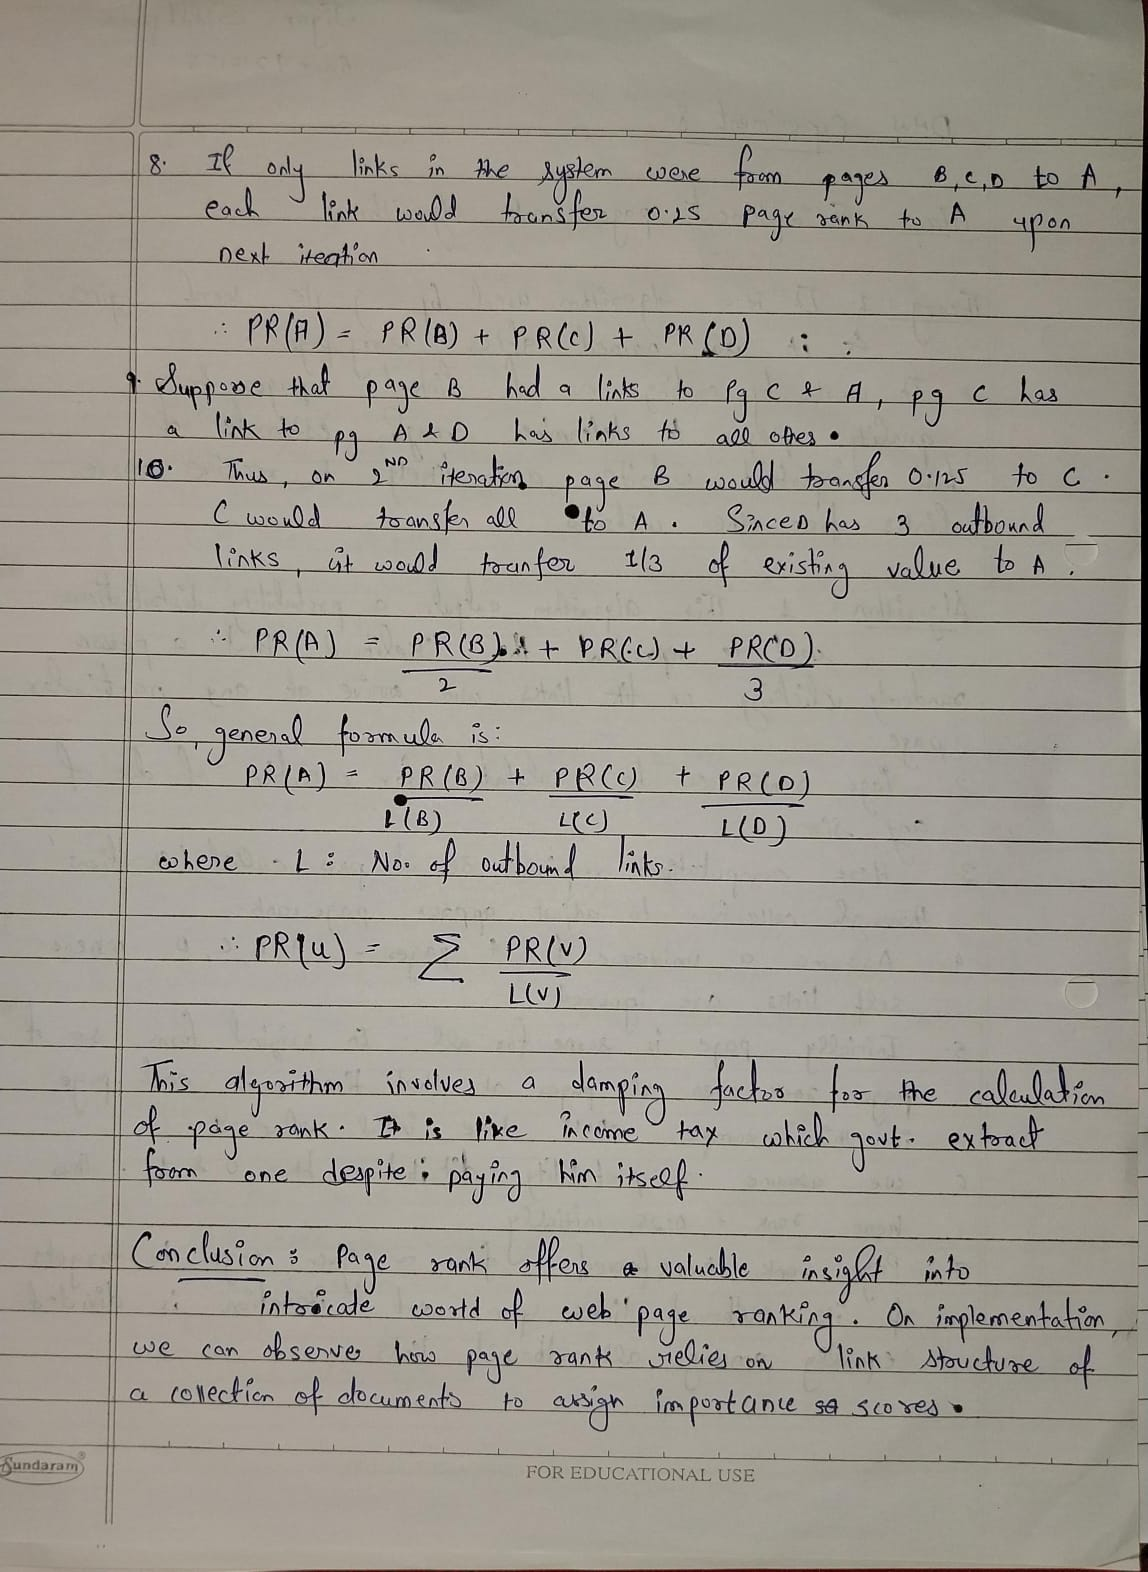 8. If only links in the system were from pages B, C, D to A,
each link would transfer 0.25 page rank to A upon
next iteation
∴ PR(A) = PR(B) + PR(C) + PR(D)
9. Suppose that page B had a links to Pg C & A, pg C has
a link to pg A & D has links to all othes.
10. Thus, on 2ND iteration page B would transfer 0.125 to C.
C would transfer all to A. Since D has 3 outbound
links, it would tranfer 1/3 of existing value to A.
∴ PR(A) = PR(B)/2 + PR(C) + PR(D)/3
So, general formula is:
PR(A) = PR(B)/L(B) + PR(C)/L(C) + PR(D)/L(D)
where L: No. of outbound links.
∴ PR(u) = Σ PR(v)/L(v)
This algorithm involves a damping factor for the calculation
of page rank. It is like income tax which govt. extract
from one despite paying him itself.
Conclusion: Page rank offers a valuable insight into
intricate world of web page ranking. On implementation,
we can observe how page rank relies on link structure of
a collection of documents to assign importance scores.
Sundaram
FOR EDUCATIONAL USE